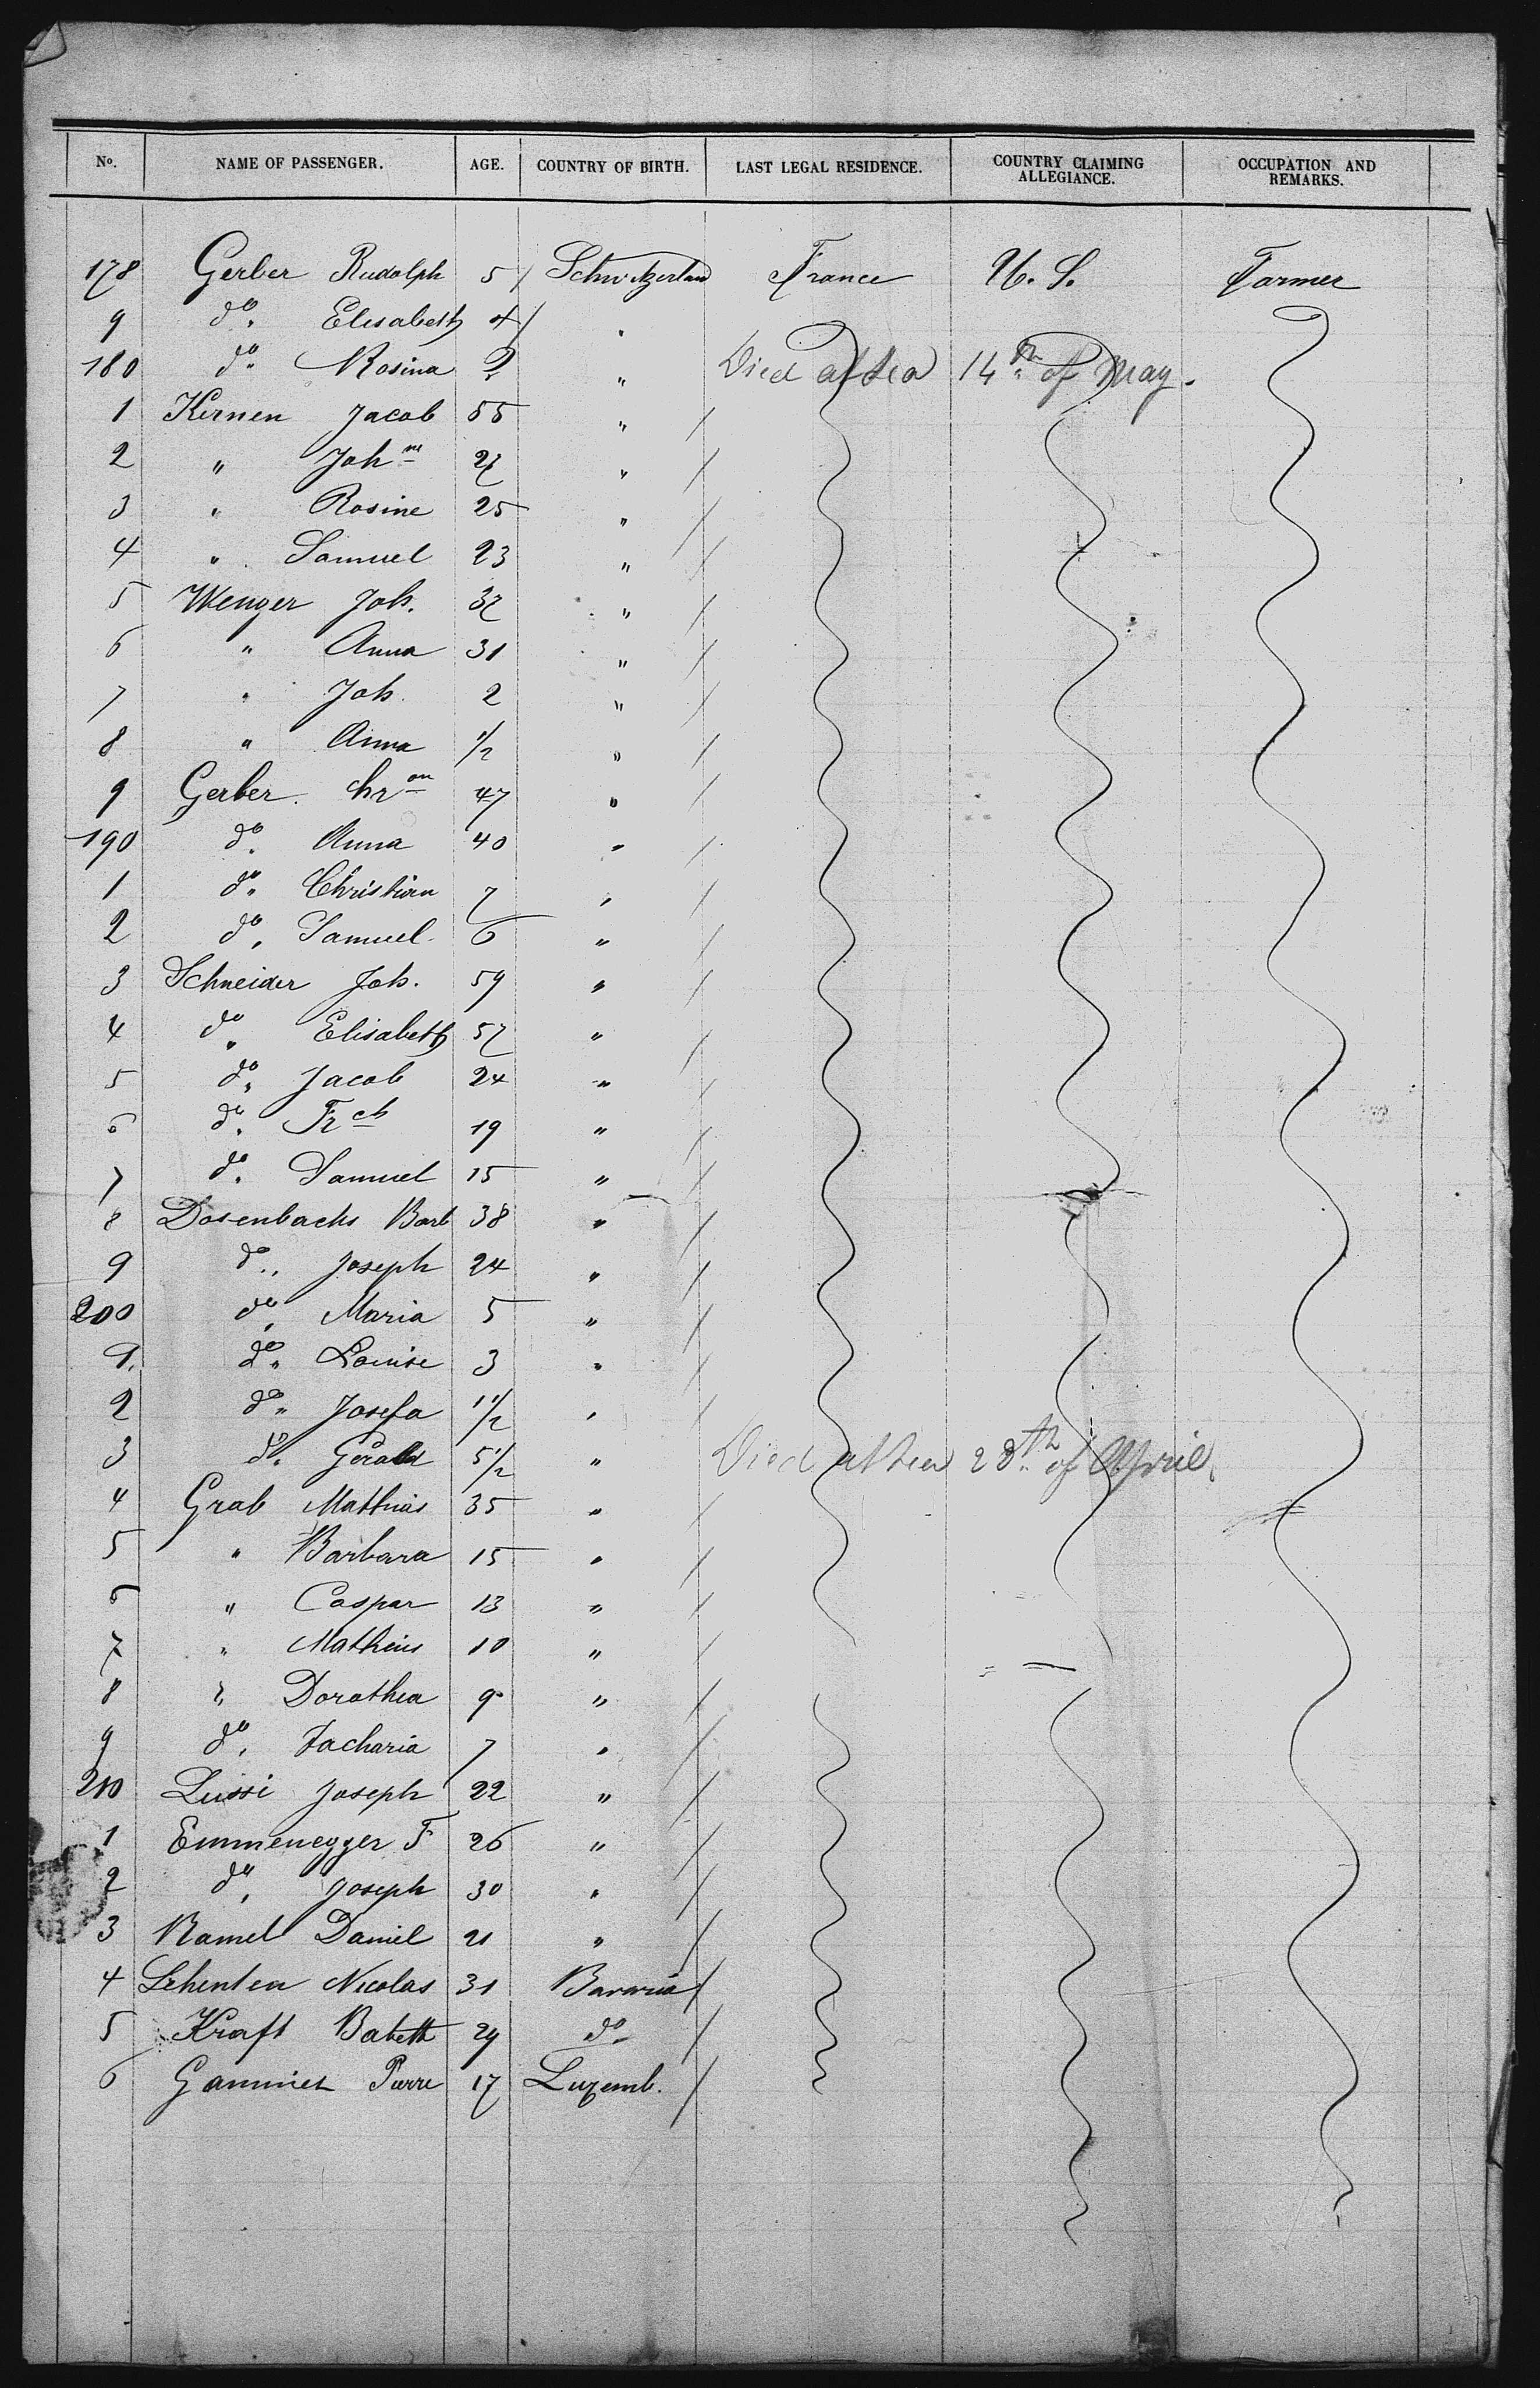 No. NAME OF PASSENGER. AGE. COUNTRY OF BIRTH. LAST LEGAL RESIDENCE. COUNTRY CLAIMING ALLEGIANCE. OCCUPATION AND REMARKS.
178 Gerber Rudolph 5 Schwitzerland France U. S. Farmer
9 do. Elisabeth 4 "
180 do. Rosina 2 " Died at Sea 14th of May.
1 Kernen Jacob 55 "
2 " Johnn 27 "
3 " Rosine 25 "
4 " Samuel 23 "
5 Wenger Joh. 37 "
6 " Anna 31 "
7 " Joh. 2 "
8 " Anna 1/2 "
9 Gerber chran 47 "
190 do. Anna 40 "
1 do. Christian 7 "
2 do. Samuel 6 "
3 Schneider Joh. 59 "
4 do. Elisabeth 57 "
5 do. Jacob 24 "
6 do. Frch 19 "
7 do. Samuel 15 "
8 Dosenbachs Barb 38 "
9 do. Joseph 24 "
200 do. Maria 5 "
1. do. Louise 3 "
2 do. Josefa 1 1/2 "
3 do. Gerald 5 1/2 " Died at Sea 28th of April.
4 Grab Mathias 35 "
5 " Barbara 15 "
6 " Caspar 13 "
7 " Matheus 10 "
8 " Dorothea 9 "
9 do. Zacharia 7 "
210 Lussi Joseph 22 "
1 Emmenegger F 26 "
2 do. Joseph 30 "
3 Ramel Daniel 21 "
4 Nicolas 31 Bavaria
5 Kraft Babeth 29 do.
6 Pierre 17 Luxemb.